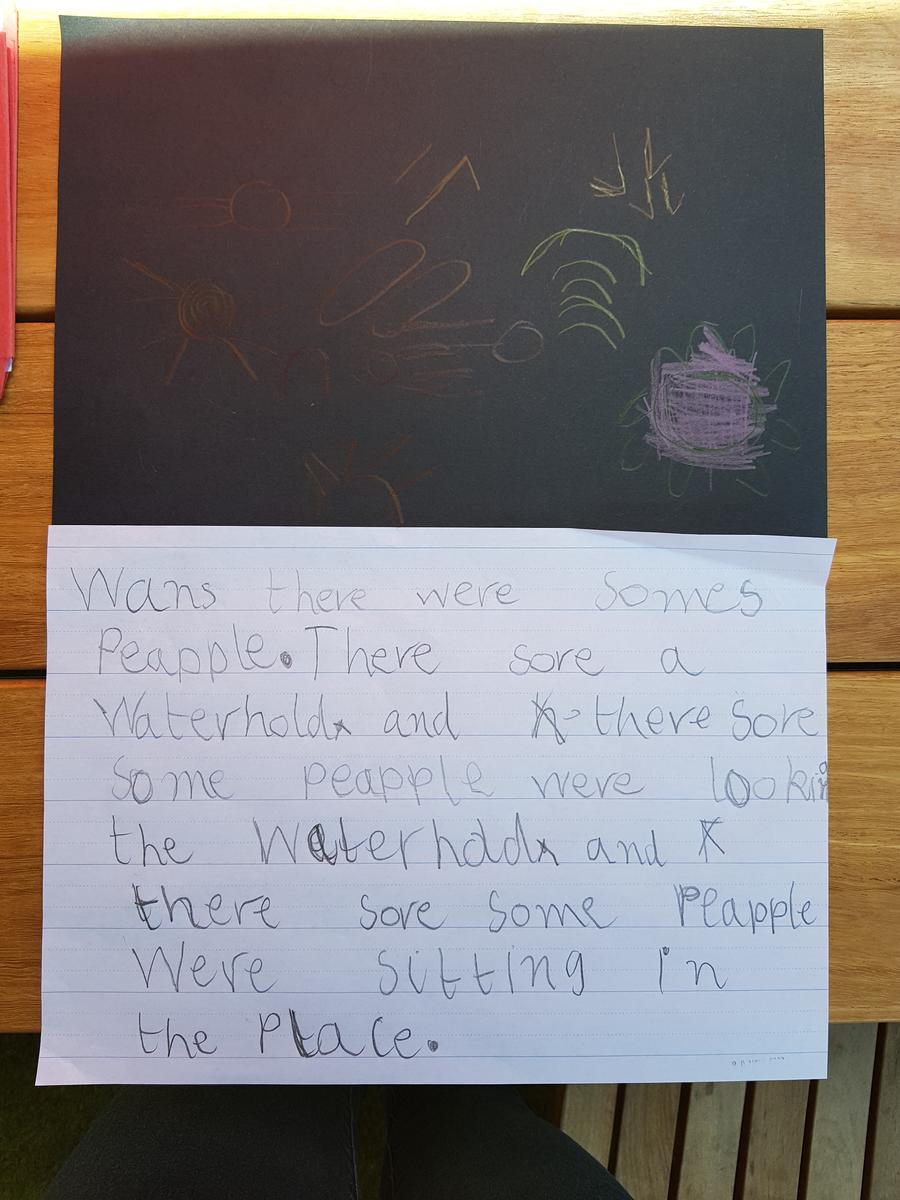 Wans there were somes
Peapple. There sore a
Waterhold and there sore
some peapple were lookin
the Waterhold and
there sore some Peapple
Were sitting in
the Place.